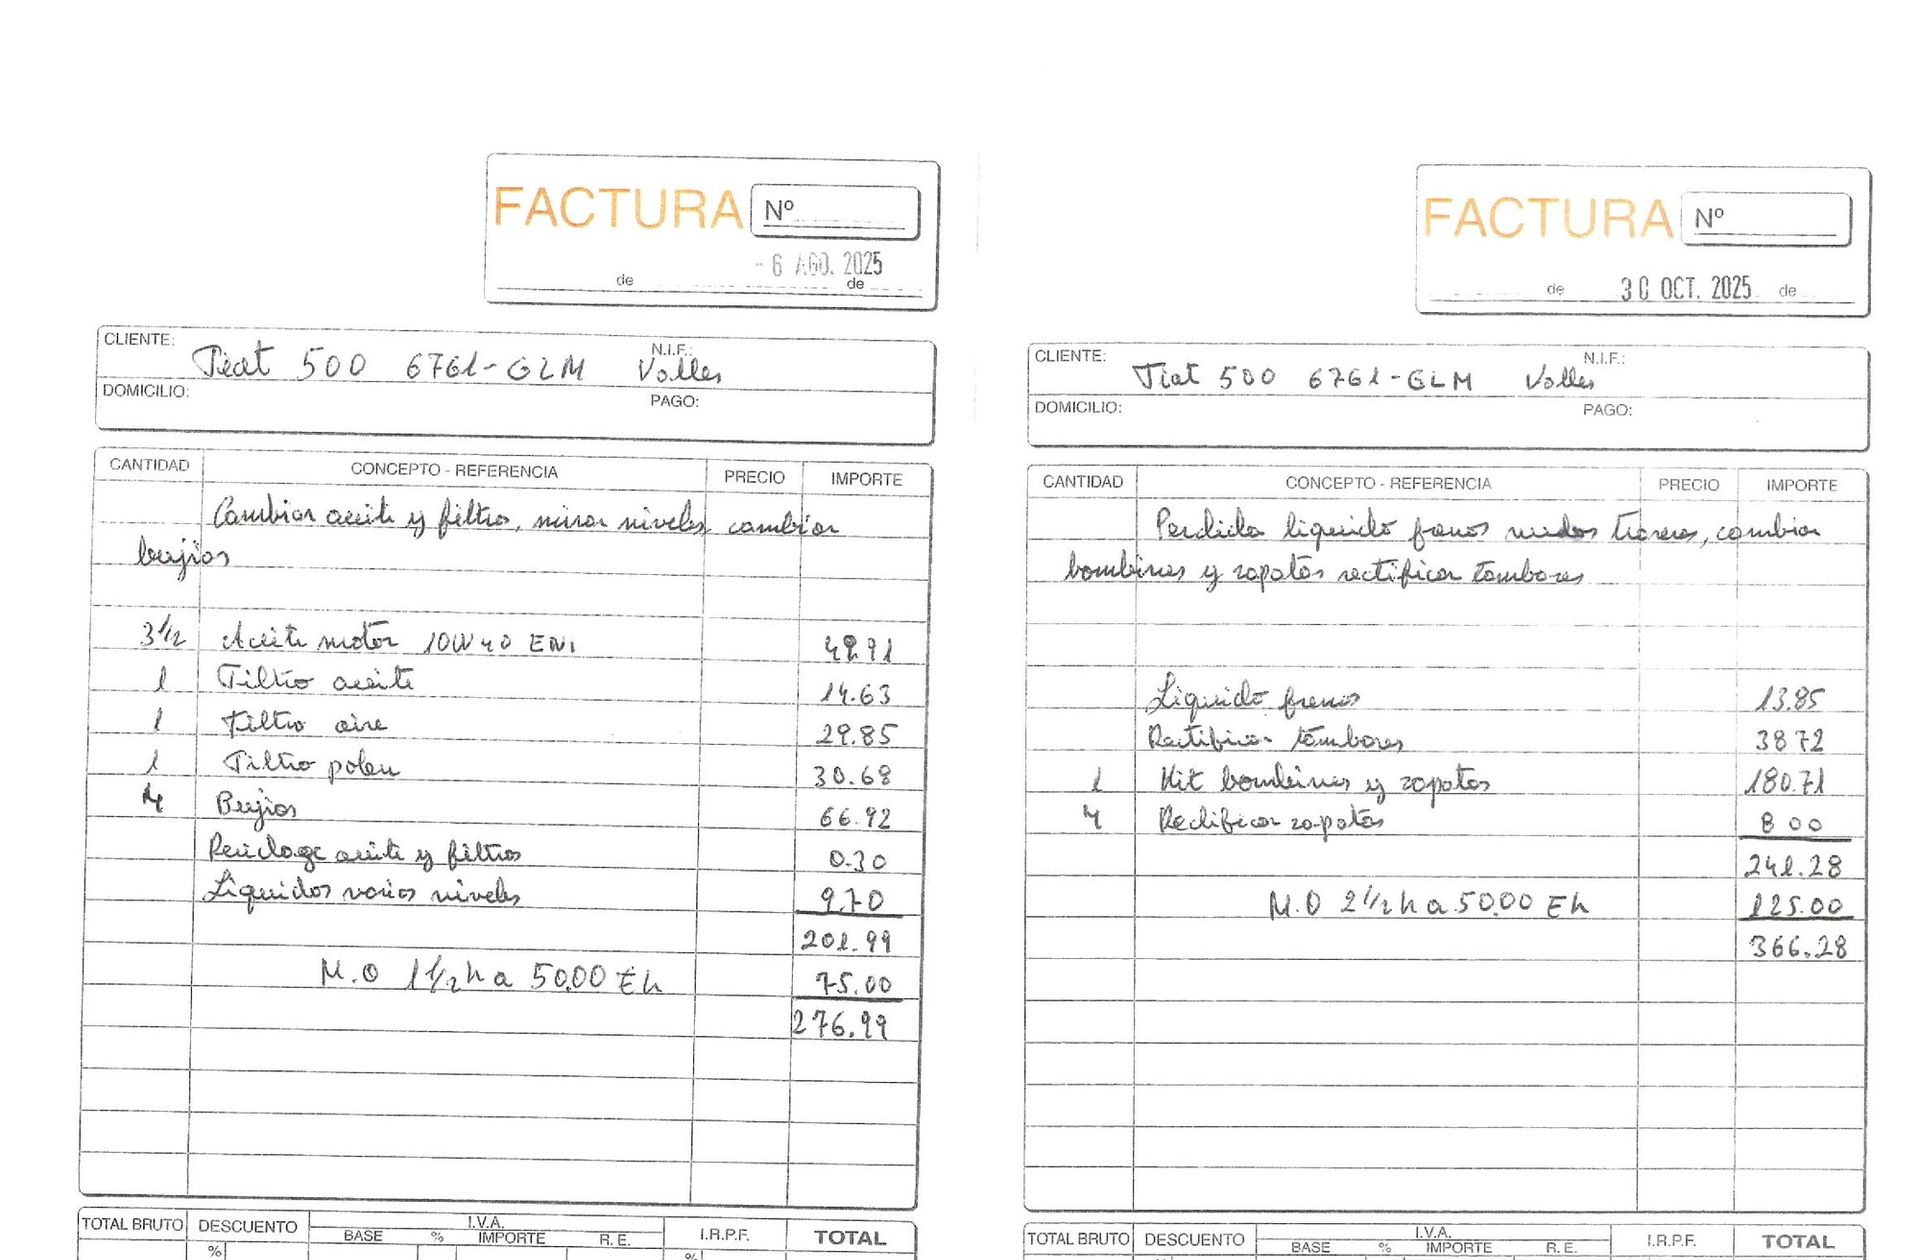 FACTURA Nº
- 6 AGO. 2025
de de
CLIENTE: Fiat 500 6761-GLM N.I.F.: Valles
DOMICILIO: PAGO:
CANTIDAD CONCEPTO - REFERENCIA PRECIO IMPORTE
Cambiar aceite y filtro, mirar niveles, cambiar
bujias
3 1/2 Aceite motor 10W40 ENI 49.91
1 Filtro aceite 14.63
1 Filtro aire 29.85
1 Filtro polen 30.68
4 Bujias 66.92
Reciclage aceite y filtros 0.30
Liquidos varios niveles 9.70
201.99
M.O 1 1/2 h a 50.00 €h 75.00
276.99
TOTAL BRUTO DESCUENTO I.V.A. I.R.P.F. TOTAL
BASE % IMPORTE R. E.
% %
FACTURA Nº
de 30 OCT. 2025 de
CLIENTE: Fiat 500 6761-GLM N.I.F.: Valles
DOMICILIO: PAGO:
CANTIDAD CONCEPTO - REFERENCIA PRECIO IMPORTE
Perdida liquido frenos ruedas traseras, cambiar
bombines y zapatas rectificar tambores
Liquido frenos 13.85
Rectificar tambores 38 72
1 Kit bombines y zapatas 180.71
4 Rectificar zapatas 8 00
241.28
M.O 2 1/2 h a 50.00 €h 125.00
366.28
TOTAL BRUTO DESCUENTO I.V.A. I.R.P.F. TOTAL
BASE % IMPORTE R. E.